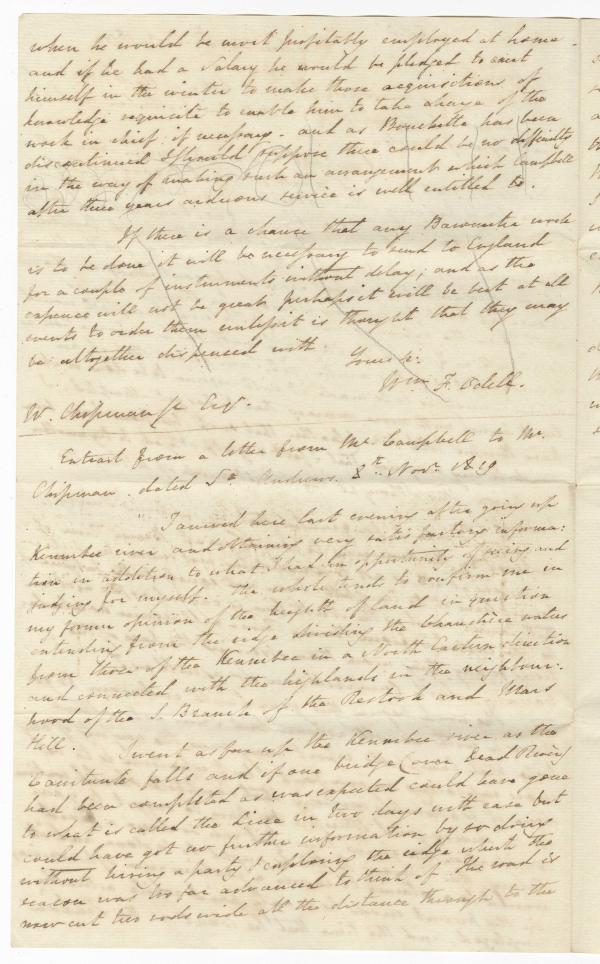 when he would be most profitably employed at home
and if he had a Salary he would be pledged to exert
himself in the winter to make those acquisitions of
knowledge requisite to enable him to take charge of the
work in chief if necessary. and as Bouchette has been
discontinued I should suppose there could be no difficulty
in the way of making such an arrangement which Campbell
after three years arduous service is well entitled to.
If there is a chance that any Barometer work
is to be done it will be necessary to send to England
for a couple of instruments without delay; and as the
expence will not be great perhaps it will be best at all
events to order them unless it is thought that they may
be altogether dispensed with.
Yours &c.
Wm. F. Odell.
W. Chipman Jr Esqr.
Extract from a letter from Mr. Campbell to Mr.
Chipman. dated St. Andrews. 8th Novr. 1819
"I arrived here last evening after going up
Kennebec river and obtaining very satisfactory informa:
tion in addition to what I had an opportunity of seeing and
judging for myself. The whole tends to confirm me in
my former opinion of the heights of land in question
extending from the ridge dividing the Chaudière waters
from those of the Kennebec in a North Eastern direction
and connected with the highlands in the neighbour:
hood of the S. Branch of the Restook and Mars
Hill. I went as far up the Kennebec river as the
Caritunk falls and if one bridge (over Dead River)
had been completed as was expected could have gone
to what is called the Line in two days with ease but
could have got no further information by so doing
without hiring a party & exploring the ridge which the
season was too far advanced to think of. The road is
now cut two rods wide all the distance through to the